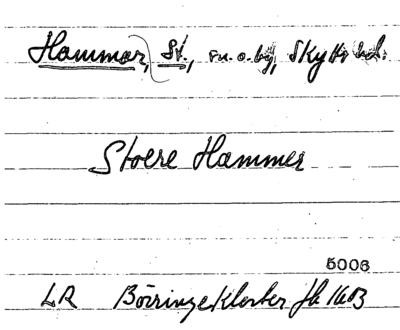 Hammar, St., sn. o. by, Skytts hd.
Stoere Hammer
5006
LR Börringekloster Jb 1603